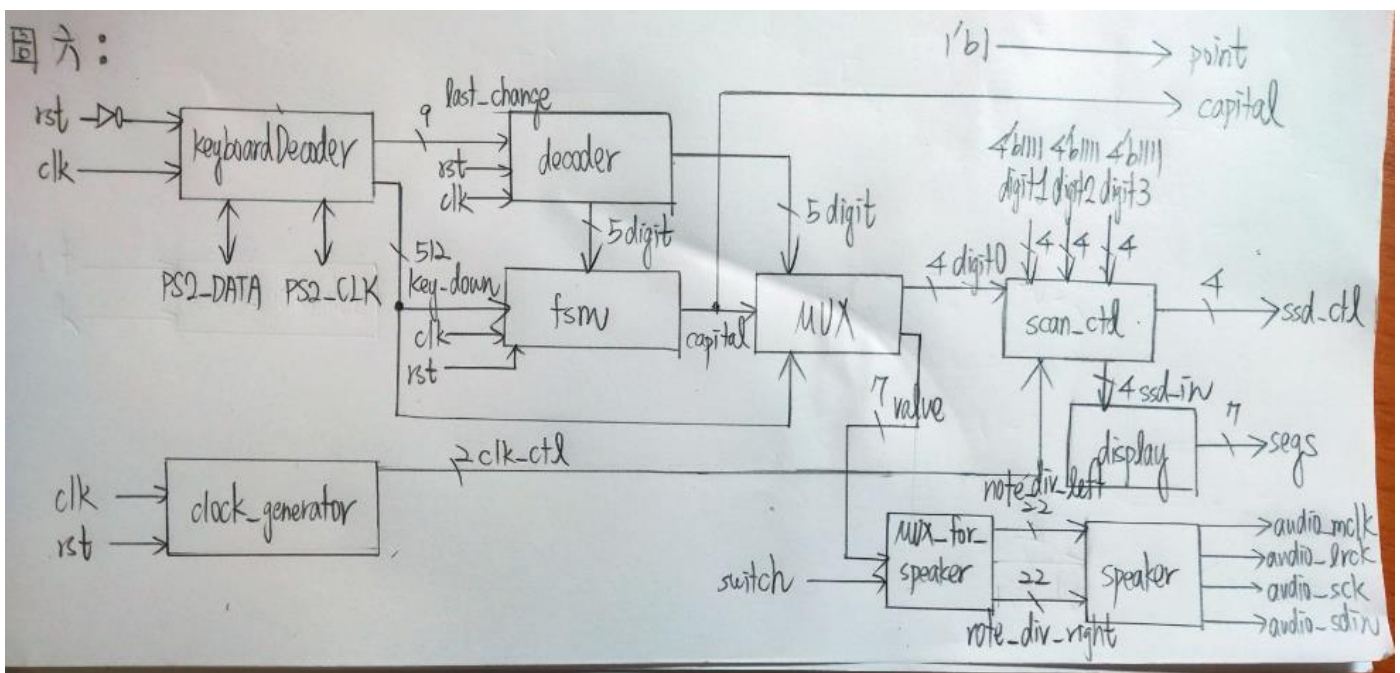 圖六：
1'b1
point
capital
rst
clk
keyboardDecoder
9
last_change
rst
clk
decoder
5 digit
5 digit
PS2_DATA
PS2_CLK
512
key_down
clk
rst
fsm
capital
MUX
4 digit0
4'b1111 4'b1111 4'b1111
digit1 digit2 digit3
4 4 4
scan_ctl
4
ssd_ctl
4 ssd_in
display
7
segs
7 value
clk
rst
clock_generator
2 clk_ctl
switch
MUX_for_
speaker
note_div_left
22
22
note_div_right
speaker
audio_mclk
audio_lrck
audio_sck
audio_sdin